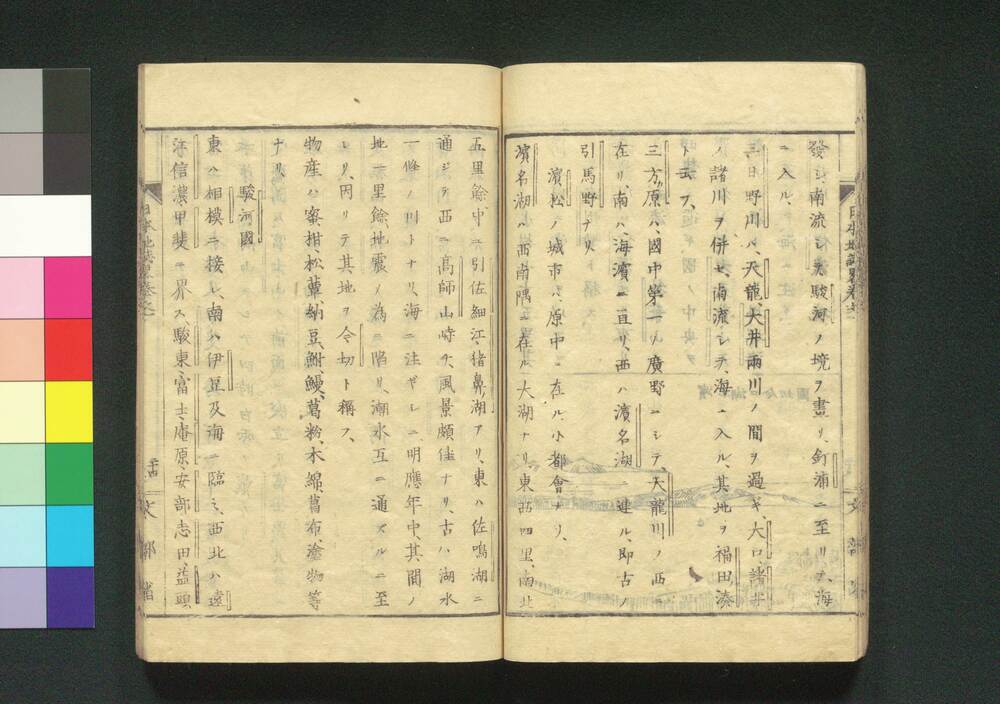 發シ南流シテ駿河ノ境ヲ畫リ、釘浦ニ至リテ、海
ニ入ル、
三日野川ハ、天龍、大井兩川ノ間ヲ過ギ、大口、諸井
ノ諸川ヲ併セ、南流シテ、海ニ入ル、其地ヲ福田湊
ト云フ、
三方原ハ、國中第一ノ廣野ニシテ、天龍川ノ西ニ
在リ、南ハ、海濱ニ亘リ、西ハ濱名湖ニ連ル、即古ノ
引馬野ナリ、
濱松ノ城市ハ、原中ニ在ル、小都會ナリ、
濱名湖ハ西南隅ニ在ル大湖ナリ、東西四里、南北
五里餘中ニ引佐細江、猪鼻湖アリ、東ハ佐鳴湖ニ
通ジテ西ニ高師山峙チ、風景頗佳ナリ、古ハ湖水
一條ノ川トナリ、海ニ注ギシニ、明應年中、其間ノ
地一里餘地震ノ爲ニ陷リ、潮水互ニ通ズルニ至
レリ、因リテ其地ヲ今切ト稱フ、
物産ハ蜜柑、松蕈、納豆、鮒、鰻、葛粉、木綿、葛布、塗物等
ナリ、
駿河國
東ハ相模ニ接シ、南ハ伊豆及海ニ臨ミ、西北ハ遠
江信濃甲斐ニ界ス駿東、富士、庵原、安部志田、益頭
文部省